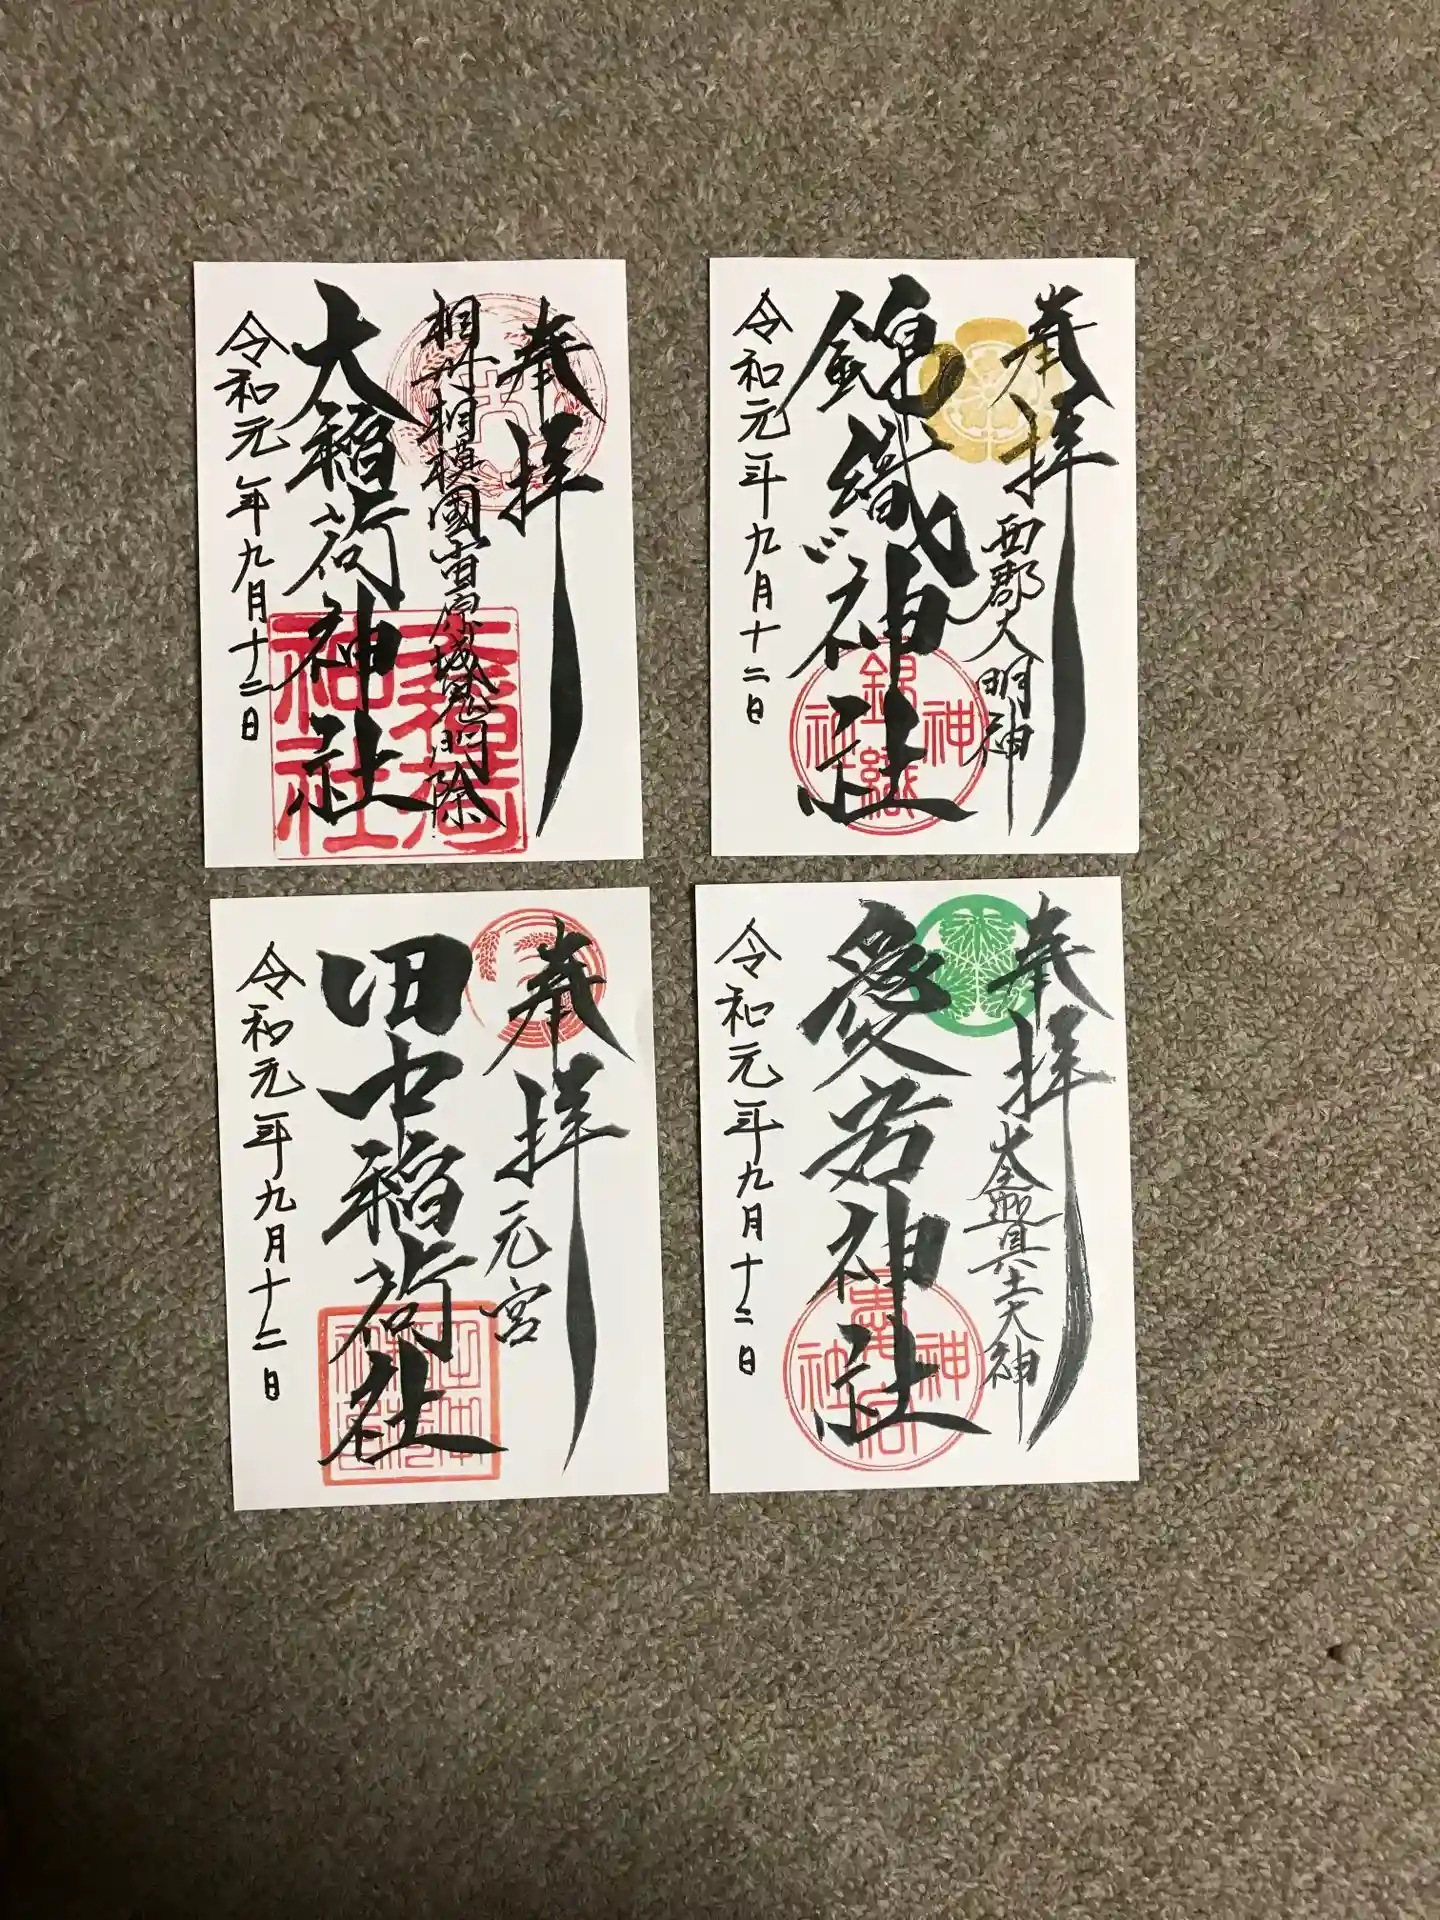 奉拝
相州相模國宙原城鬼門除
大稲荷神社
令和元年九月十二日
奉拝
西郡大明神
錦織神社
錦織
神社
令和元年九月十二日
奉拝
元宮
田中稲荷社
令和元年九月十二日
奉拝
愛宕神社
神社
令和元年九月十二日